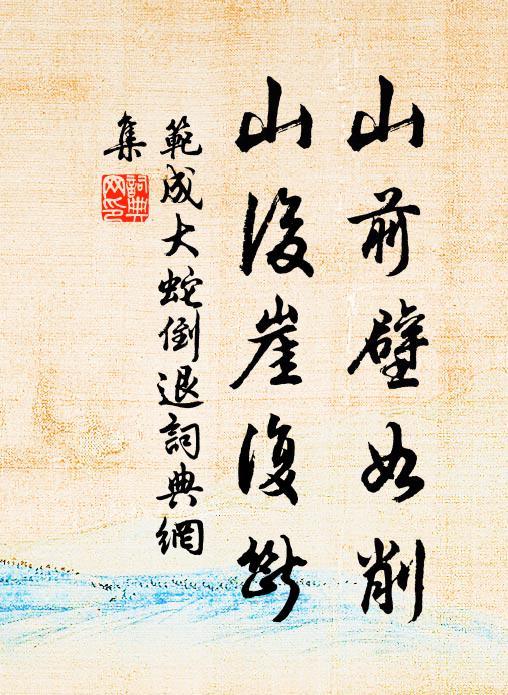 山前壁如削
山後崖復斷
範成大蛇倒退詞典網
集
詞典
网印